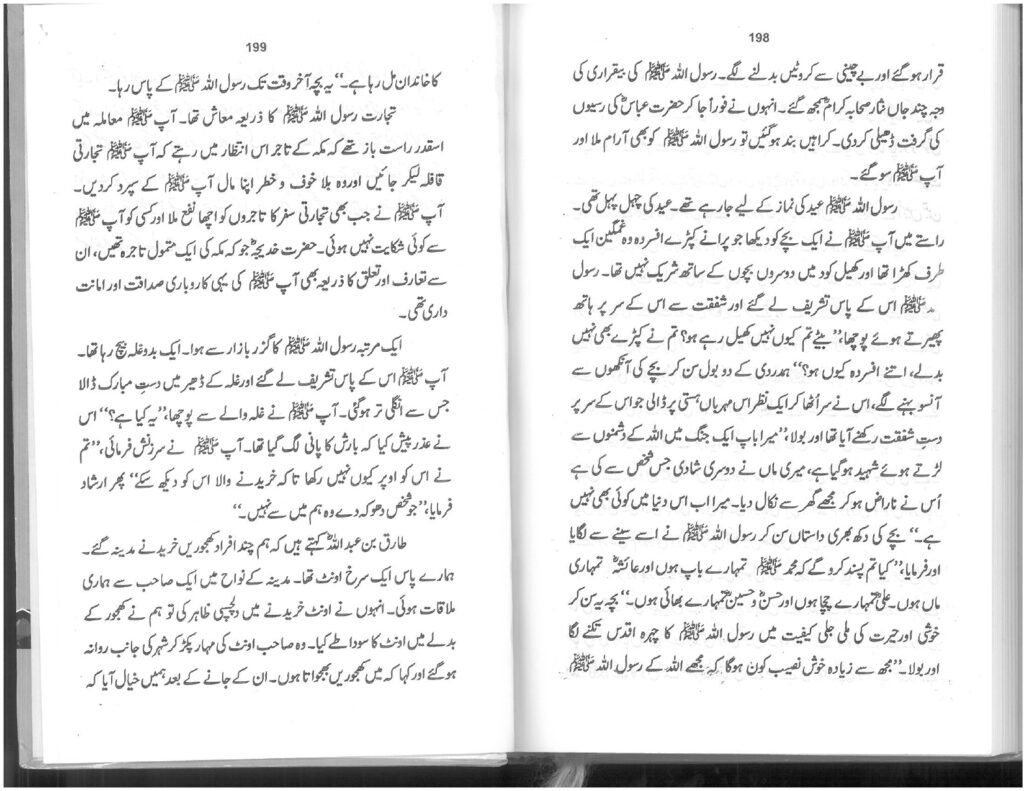 198
قرار ہوگئے اور بے چینی سے کروٹیں بدلنے لگے۔ رسول اللہ ﷺ کی بیقراری کی
وجہ چند جاں نثار صحابہ کرامؓ سمجھ گئے۔ انہوں نے فوراً جا کر حضرت عباسؓ کی رسیوں
کی گرفت ڈھیلی کردی۔ کراہیں بند ہوگئیں تو رسول اللہ ﷺ کو بھی آرام ملا اور
آپ ﷺ سو گئے۔
رسول اللہ ﷺ عید کی نماز کے لیے جارہے تھے۔ عید کی چہل پہل تھی۔
راستے میں آپ ﷺ نے ایک بچے کو دیکھا جو پرانے کپڑے افسردہ وہ غمگین ایک
طرف کھڑا تھا اور کھیل کود میں دوسروں بچوں کے ساتھ شریک نہیں تھا۔ رسول
ﷺ اس کے پاس تشریف لے گئے اور شفقت سے اس کے سر پر ہاتھ
پھیرتے ہوئے پوچھا،’’بیٹے تم کیوں نہیں کھیل رہے ہو؟ تم نے کپڑے بھی نہیں
بدلے، اتنے افسردہ کیوں ہو؟‘‘ ہمدردی کے دو بول سن کر بچے کی آنکھوں سے
آنسو بہنے لگے، اس نے سر اُٹھا کر ایک نظر اس مہرباں ہستی پر ڈالی جو اس کے سر پر
دستِ شفقت رکھنے آیا تھا اور بولا،’’میرا باپ ایک جنگ میں اللہ کے دشمنوں سے
لڑتے ہوئے شہید ہوگیا ہے، میری ماں نے دوسری شادی جس شخص سے کی ہے
اُس نے ناراض ہوکر مجھے گھر سے نکال دیا۔ میرا اب اس دنیا میں کوئی بھی نہیں
ہے۔‘‘ بچے کی دکھ بھری داستاں سن کر رسول اللہ ﷺ نے اسے سینے سے لگایا
اور فرمایا،’’کیا تم پسند کروگے کہ محمد ﷺ تمہارے باپ ہوں اور عائشہؓ تمہاری
ماں ہوں۔ علیؓ تمہارے چچا ہوں اور حسنؓ و حسینؓ تمہارے بھائی ہوں۔‘‘ بچہ یہ سن کر
خوشی اور حیرت کی ملی جلی کیفیت میں رسول اللہ ﷺ کا چہرہ اقدس تکنے لگا
اور بولا۔’’مجھ سے زیادہ خوش نصیب کون ہوگا کہ مجھے اللہ کے رسول اللہ ﷺ
199
کا خاندان مل رہا ہے۔‘‘ یہ بچہ آخر وقت تک رسول اللہ ﷺ کے پاس رہا۔
تجارت رسول اللہ ﷺ کا ذریعہ معاش تھا۔ آپ ﷺ معاملہ میں
اسقدر راست باز تھے کہ مکہ کے تاجر اس انتظار میں رہتے کہ آپ ﷺ تجارتی
قافلہ لیکر جائیں اور وہ بلا خوف و خطر اپنا مال آپ ﷺ کے سپرد کردیں۔
آپ ﷺ نے جب بھی تجارتی سفر کا تاجروں کو اچھا نفع ملا اور کسی کو آپ ﷺ
سے کوئی شکایت نہیں ہوئی۔ حضرت خدیجہؓ جو کہ مکہ کی ایک متمول تاجرہ تھیں، ان
سے تعارف اور تعلق کا ذریعہ بھی آپ ﷺ کی یہی کاروباری صداقت اور امانت
داری تھی۔
ایک مرتبہ رسول اللہ ﷺ کا گزر بازار سے ہوا۔ ایک بدو غلہ بیچ رہا تھا۔
آپ ﷺ اس کے پاس تشریف لے گئے اور غلہ کے ڈھیر میں دستِ مبارک ڈالا
جس سے انگلی تر ہوگئی۔ آپ ﷺ نے غلہ والے سے پوچھا،’’یہ کیا ہے؟‘‘ اس
نے عذر پیش کیا کہ بارش کا پانی لگ گیا تھا۔ آپ ﷺ نے سرزنش فرمائی،’’تم
نے اس کو اوپر کیوں نہیں رکھا تا کہ خریدنے والا اس کو دیکھ سکے‘‘ پھر ارشاد
فرمایا،’’جو شخص دھوکہ دے وہ ہم میں سے نہیں۔‘‘
طارق بن عبداللہؓ کہتے ہیں کہ ہم چند افراد کھجوریں خریدنے مدینہ گئے۔
ہمارے پاس ایک سرخ اونٹ تھا۔ مدینہ کے نواح میں ایک صاحب سے ہماری
ملاقات ہوئی۔ انہوں نے اونٹ خریدنے میں دلچسپی ظاہر کی تو ہم نے کھجور کے
بدلے میں اونٹ کا سودا طے کیا۔ وہ صاحب اونٹ کی مہار پکڑ کر شہر کی جانب روانہ
ہوگئے اور کہا کہ میں کھجوریں بھجواتا ہوں۔ ان کے جانے کے بعد ہمیں خیال آیا کہ